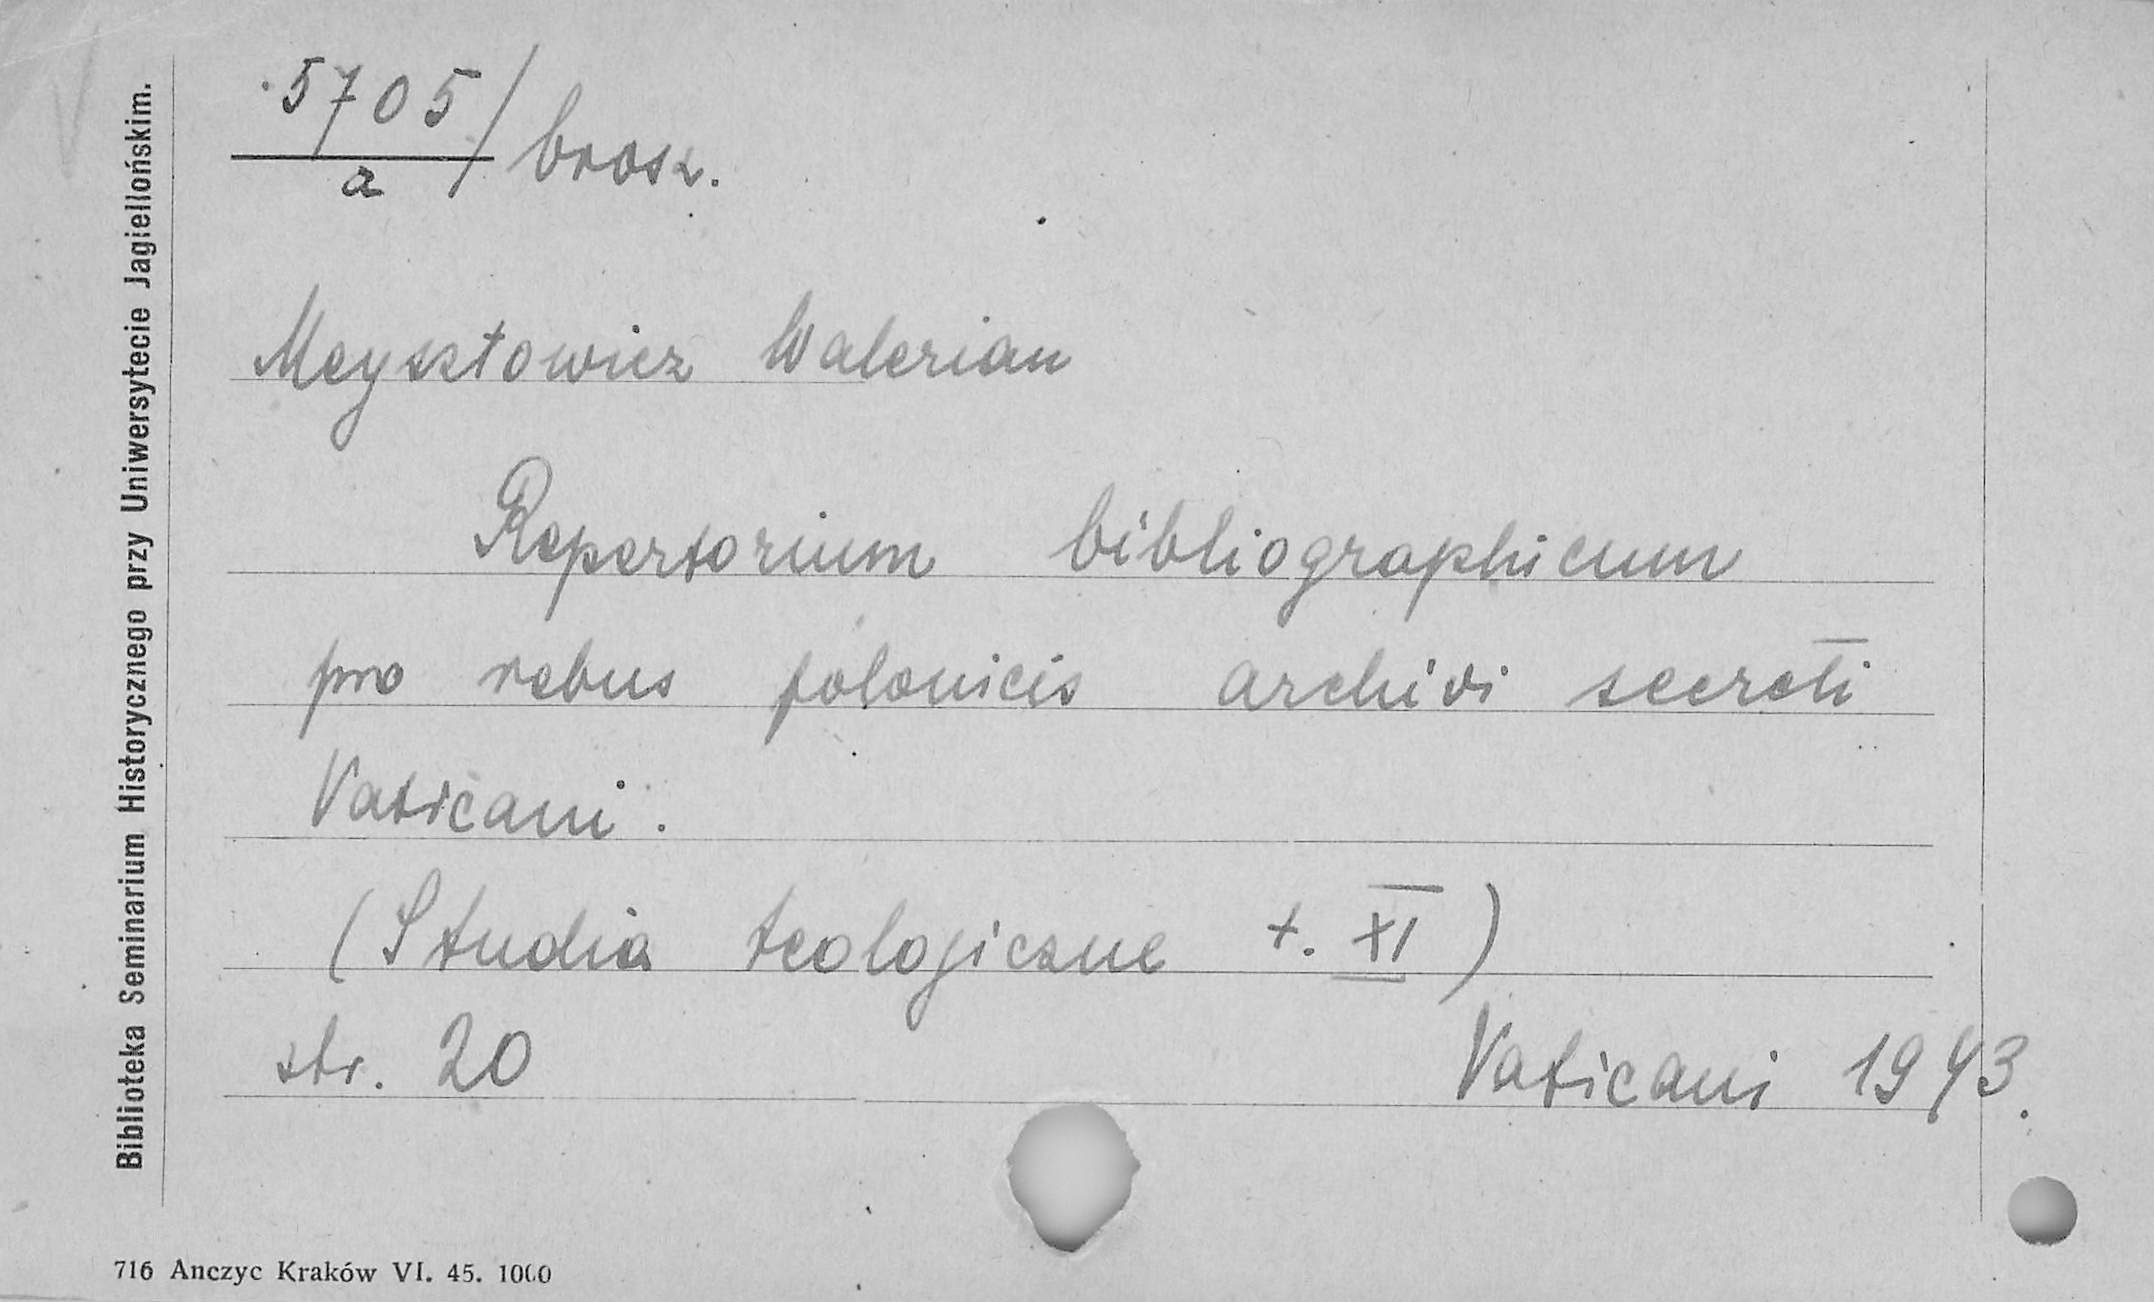 5705/
a brosz.
Meysztowicz Walerian
Repertorium bibliographicum
pro rebus polonicis archivi secreti
Vaticani.
(Studia teologiczne t. XI)
str. 20 Vaticani 1943.
Biblioteka Seminarium Historycznego przy Uniwersytecie Jagiellońskim.
716 Anczyc Kraków VI. 45. 1000